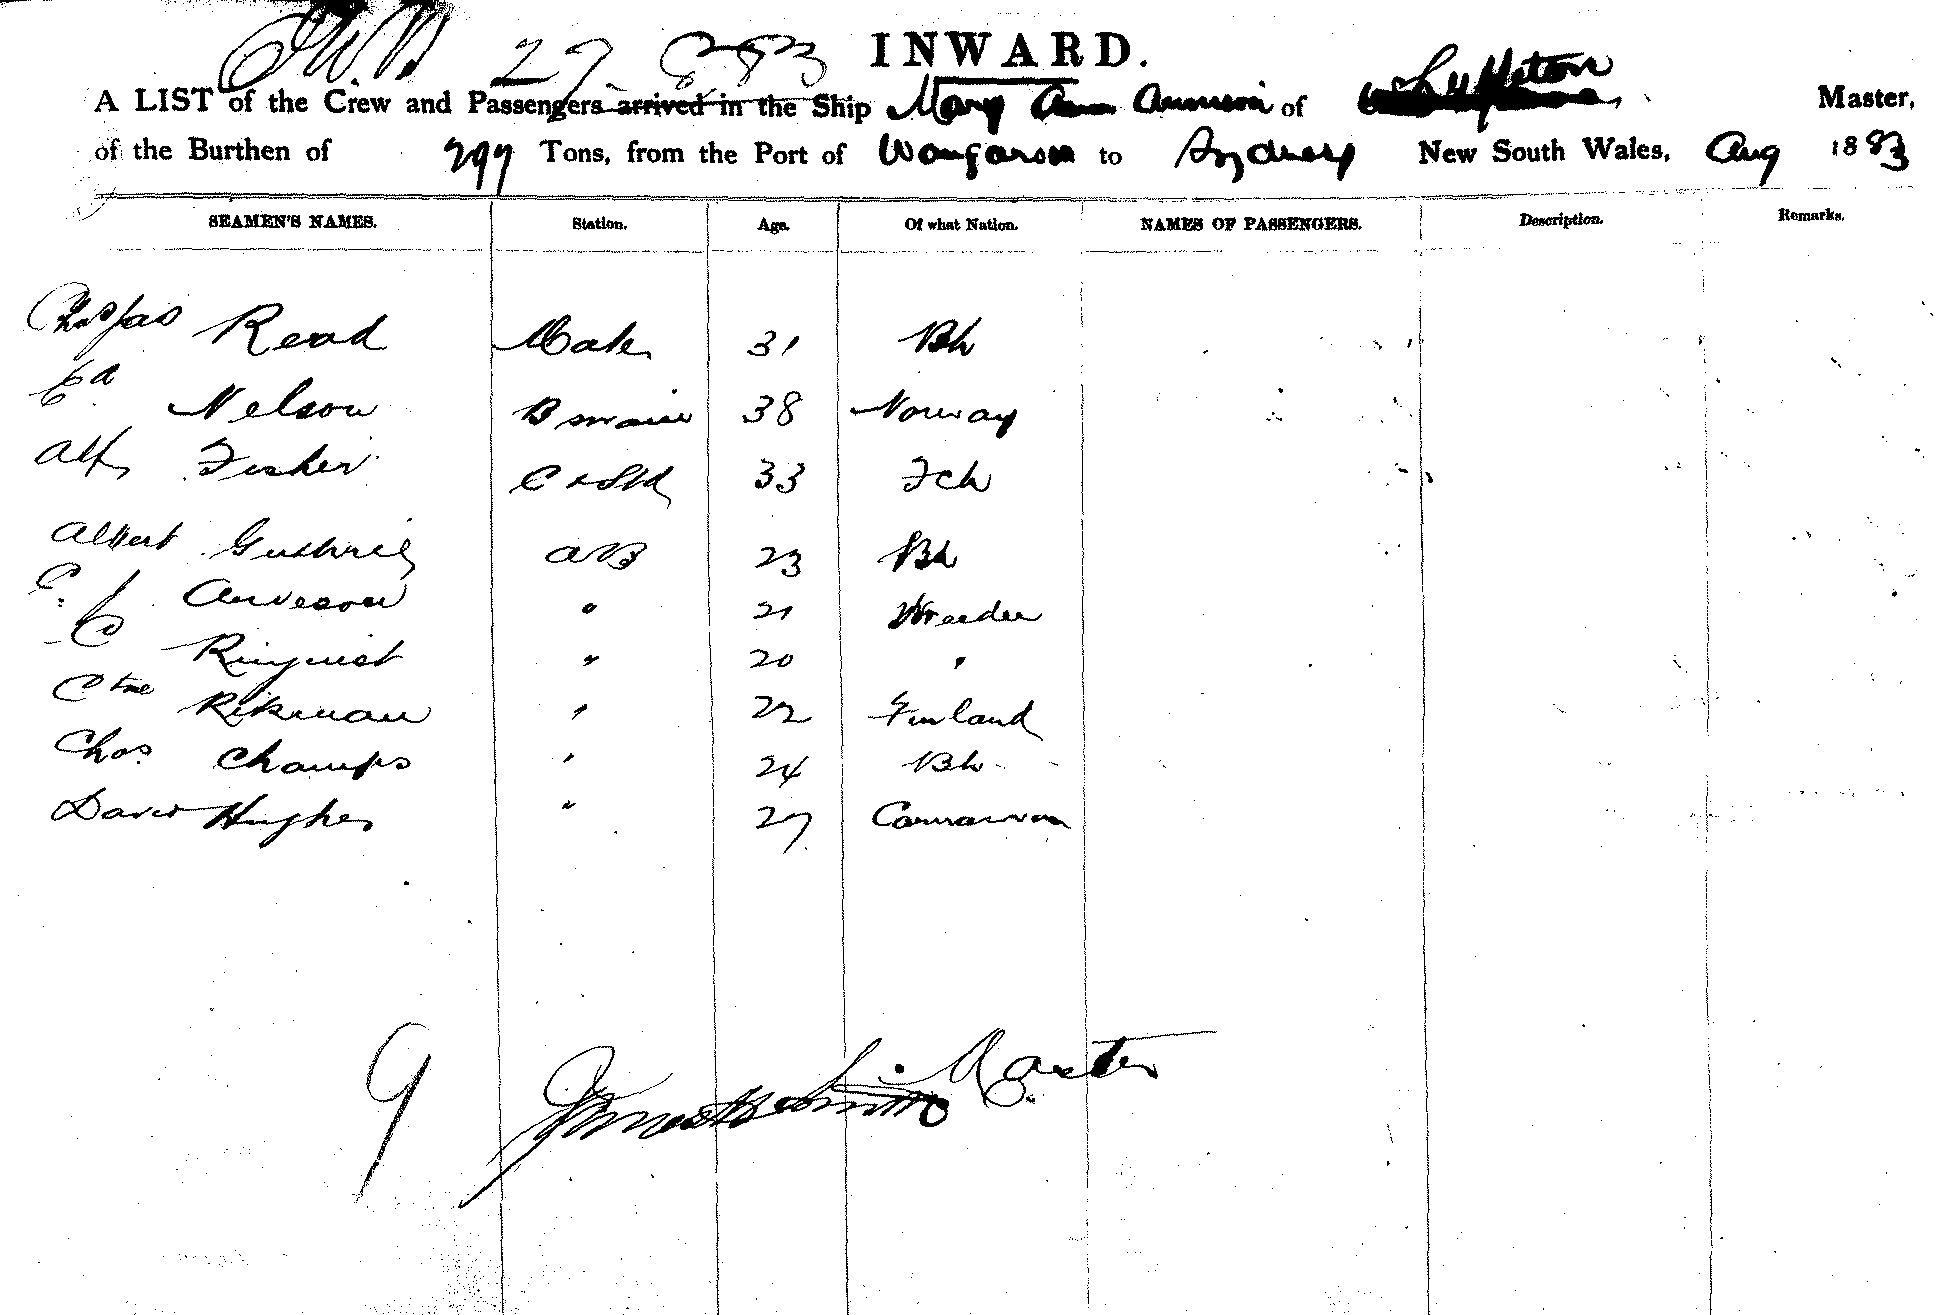 27. 8 83 INWARD.
A LIST of the Crew and Passengers arrived in the Ship Mary Ann Annison of Master,
of the Burthen of 299 Tons, from the Port of to Sydney New South Wales, Aug 1883
SEAMEN'S NAMES. Station. Age. Of what Nation. NAMES OF PASSENGERS. Description. Remarks.
Read Mate 31 Bh
Ed Nelson B swain 38 Norway
Alf Fisher C & Std 33 Fch
Albert Guthrie AB 23 Bh
Anderson " 21 Sweeden
C Ringvist " 20 "
Rikman " 22 Finland
Chas Champs " 24 Bh
David Hughes " 27 Carnarvon
9 Master